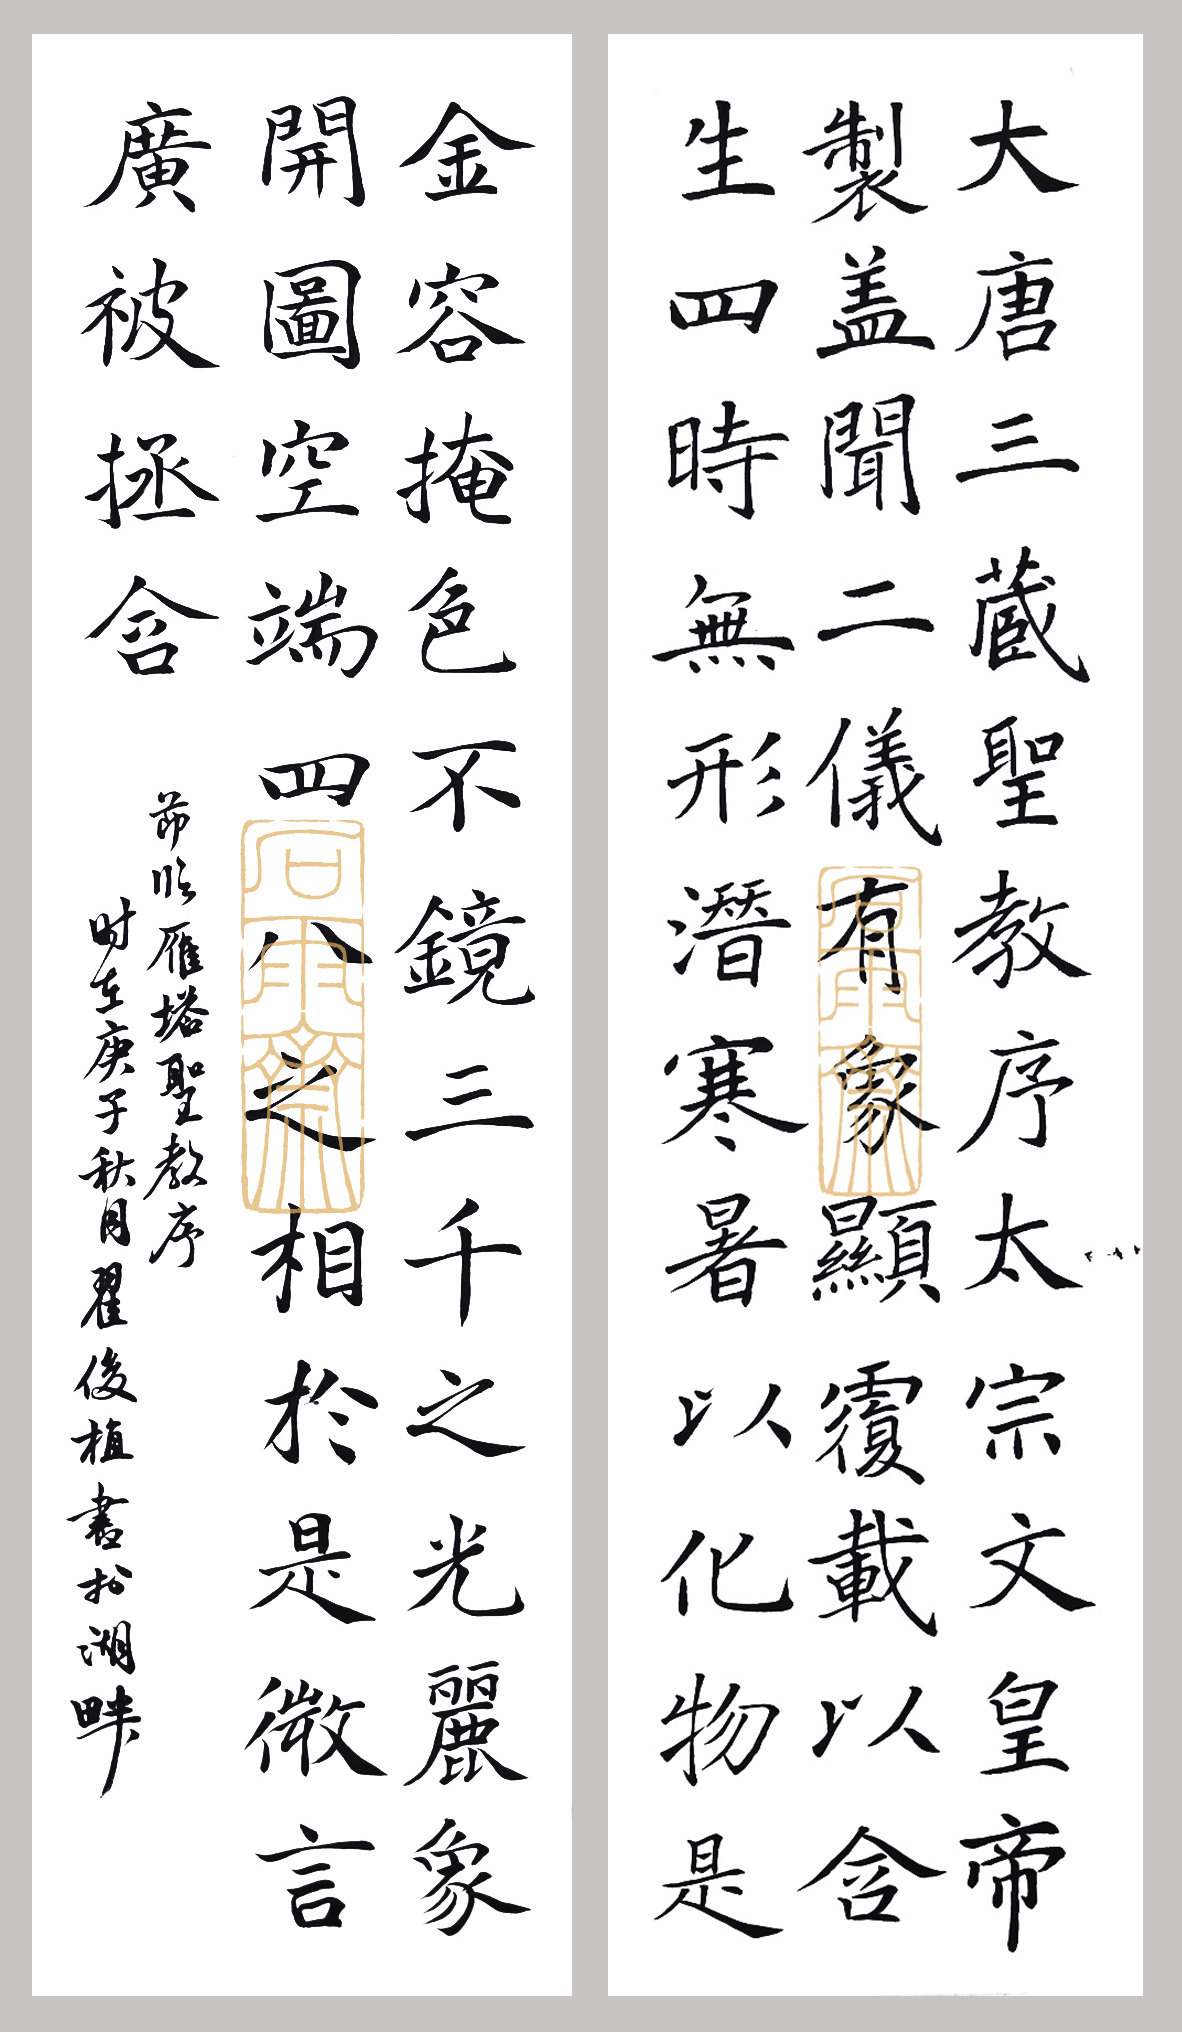 大唐三藏聖教序太宗文皇帝
製盖聞二儀有象顯覆載以含
生四時無形潛寒暑以化物是
金容掩色不鏡三千之光麗象
開圖空端四八之相於是微言
廣被拯含
节临雁塔聖教序
时在庚子秋月翟俊植書於湖畔